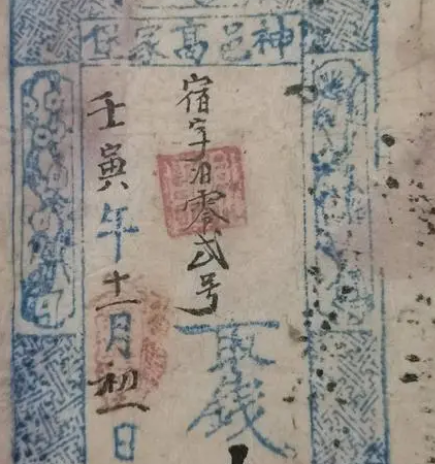 神邑高家住
宿字佰零弍号
取錢
壬寅年十一月初一日